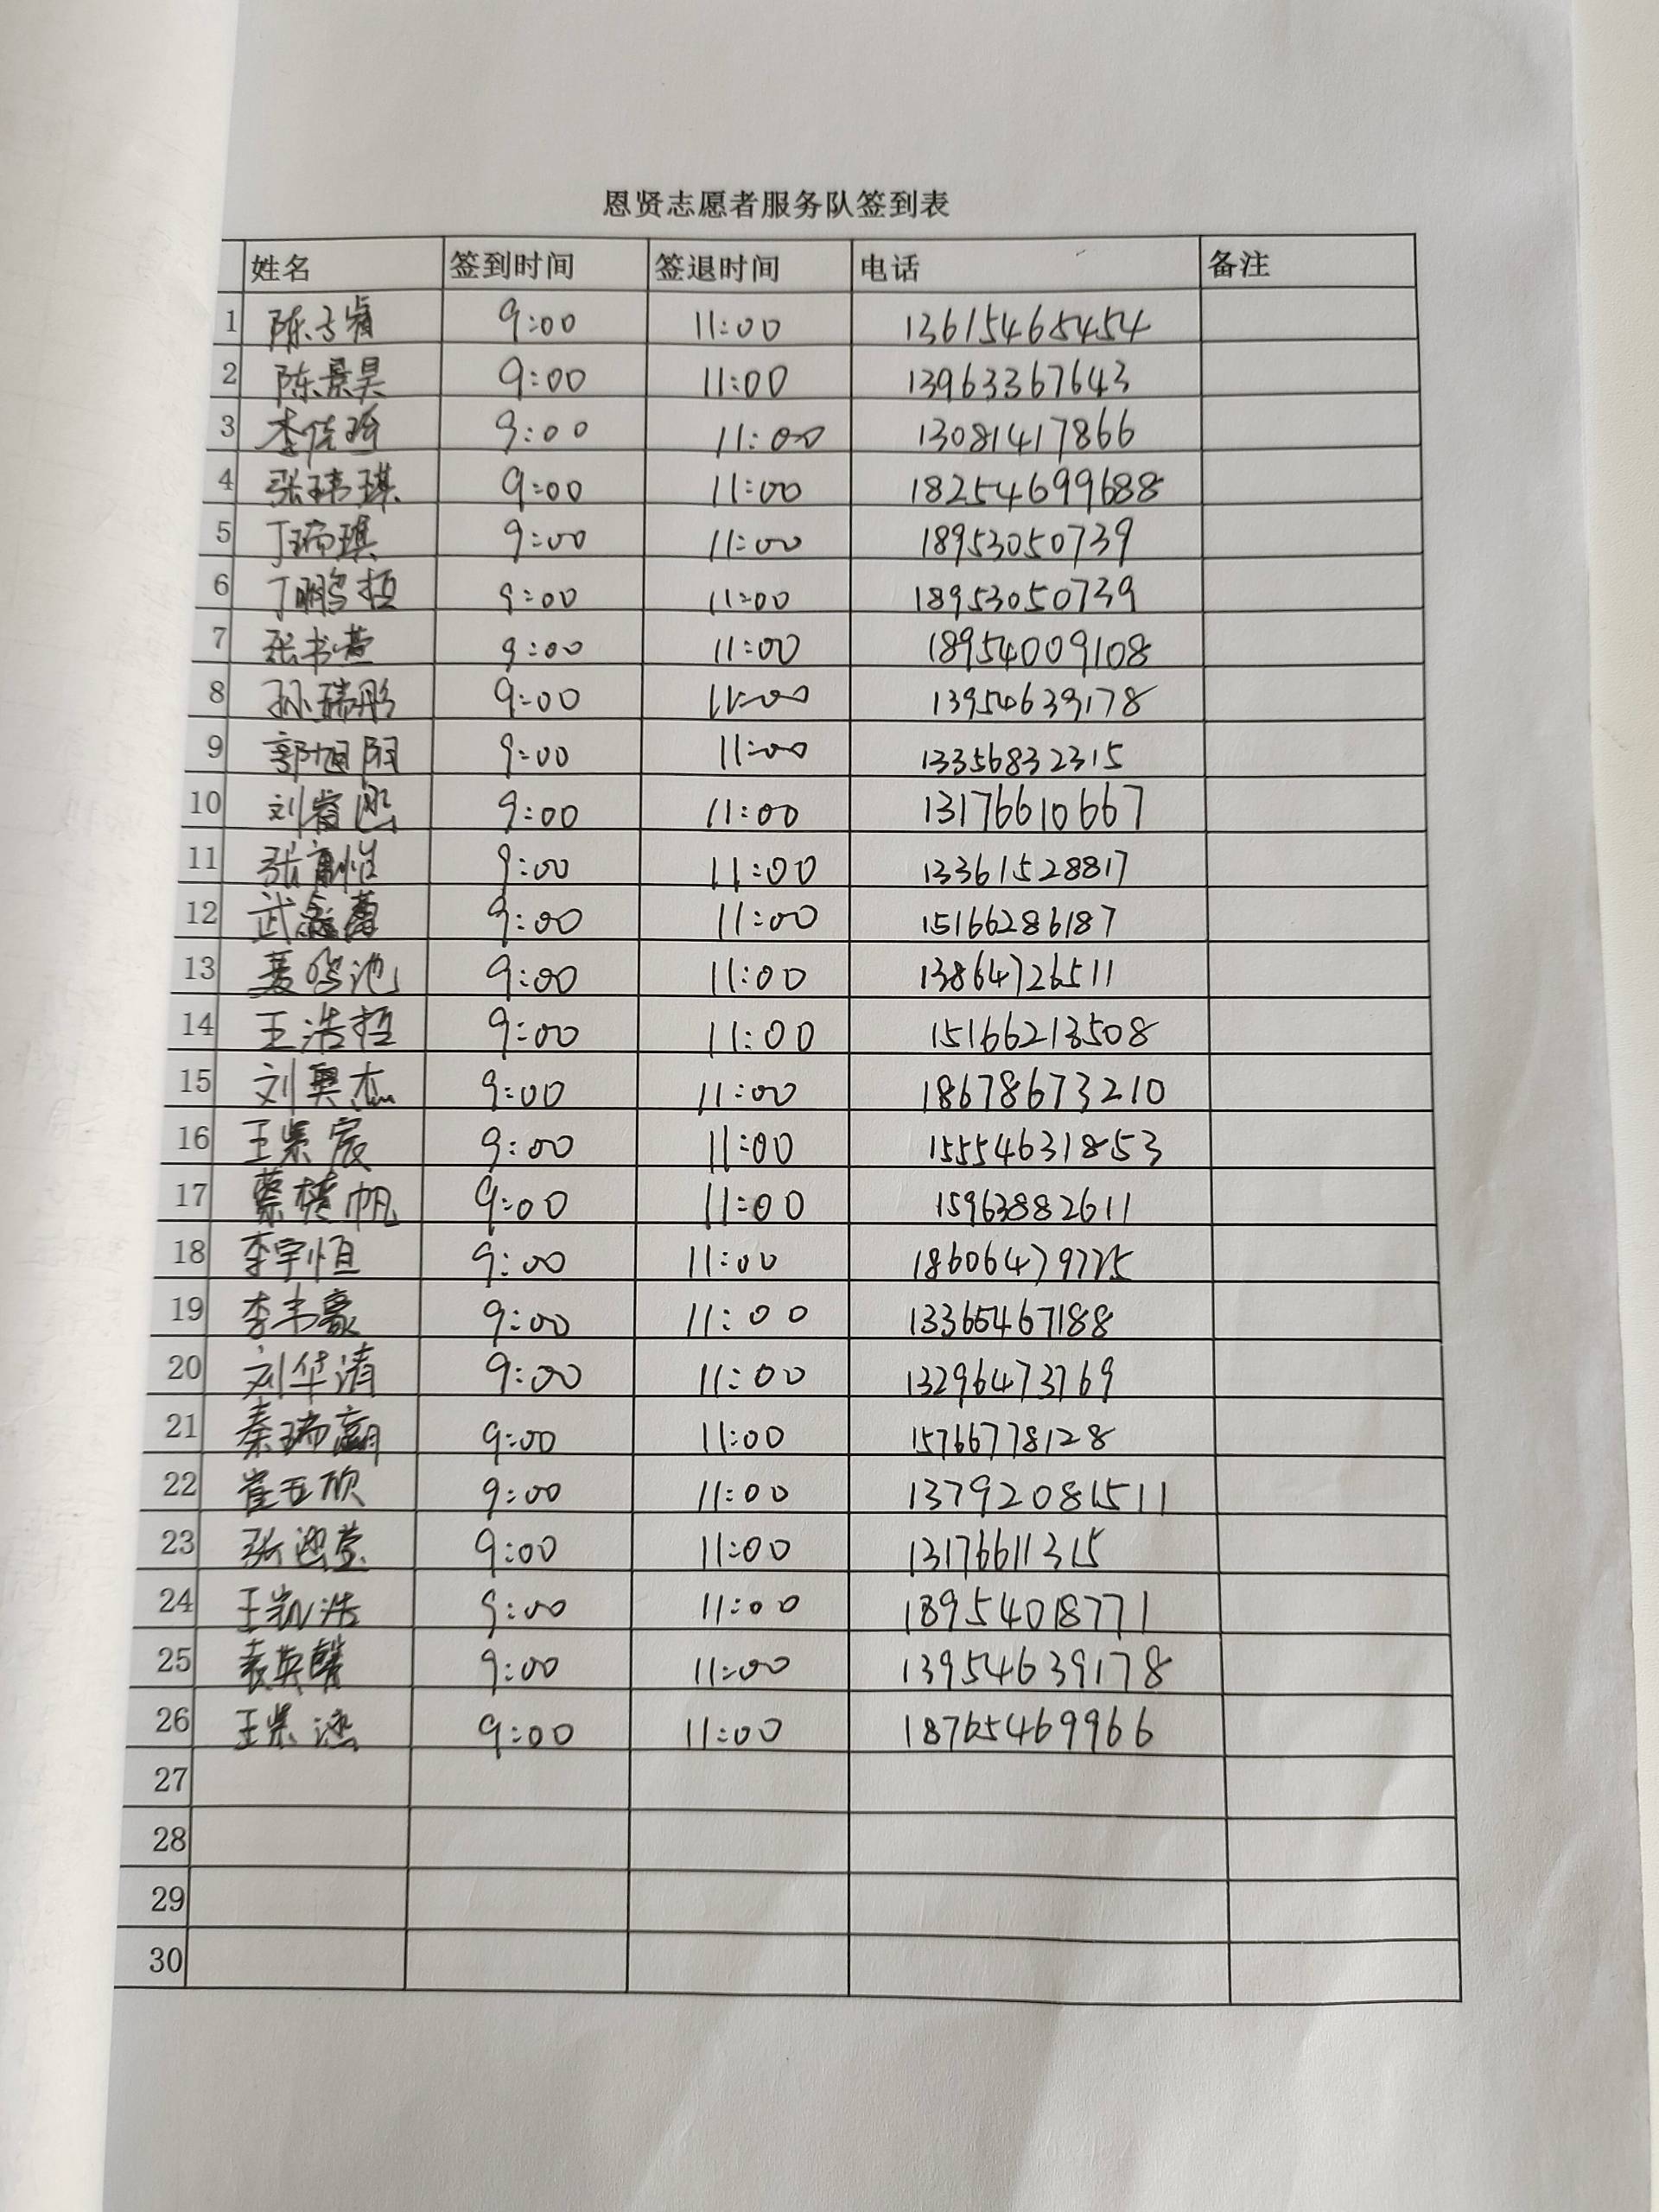 恩贤志愿者服务队签到表
姓名 签到时间 签退时间 电话 备注
1 陈子 9:00 11:00 13615465454
2 陈景昊 9:00 11:00 13963367643
3 李佳 9:00 11:00 13081417866
4 张玮琪 9:00 11:00 18254699688
5 丁瑞琪 9:00 11:00 18953050739
6 丁鹏哲 9:00 11:00 18953050739
7 张书萱 9:00 11:00 18954009108
8 孙瑞彤 9:00 11:00 13954639178
9 郭旭阳 9:00 11:00 13356832315
10 刘睿 9:00 11:00 13176610667
11 张 9:00 11:00 13361528817
12 武鑫蕾 9:00 11:00 15166286187
13 聂 池 9:00 11:00 13864726511
14 王浩哲 9:00 11:00 15166213508
15 刘奥杰 9:00 11:00 18678673210
16 王紫宸 9:00 11:00 15554631853
17 蔡楚帆 9:00 11:00 15963882611
18 李宇恒 9:00 11:00
19 李韦豪 9:00 11:00 13365467188
20 刘华清 9:00 11:00 13296473769
21 秦瑞 9:00 11:00 15766778128
22 崔玉欣 9:00 11:00 13792081511
23 张逸萱 9:00 11:00 13176611315
24 王凯浩 9:00 11:00 18954018771
25 袁英馨 9:00 11:00 13954639178
26 王紫涵 9:00 11:00 18765469966
27
28
29
30